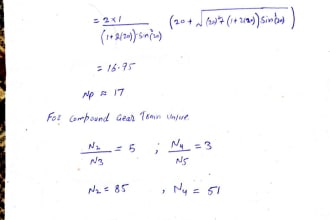 = 2×1 / (1+2(2.0)) sin²(20) (20 + √(20)² + (1+2(20)) sin²(20))
= 16.75
Np ≈ 17
For Compound Gear Train
N2/N3 = 5 ; N4/N5 = 3
N2 = 85 , N4 = 51